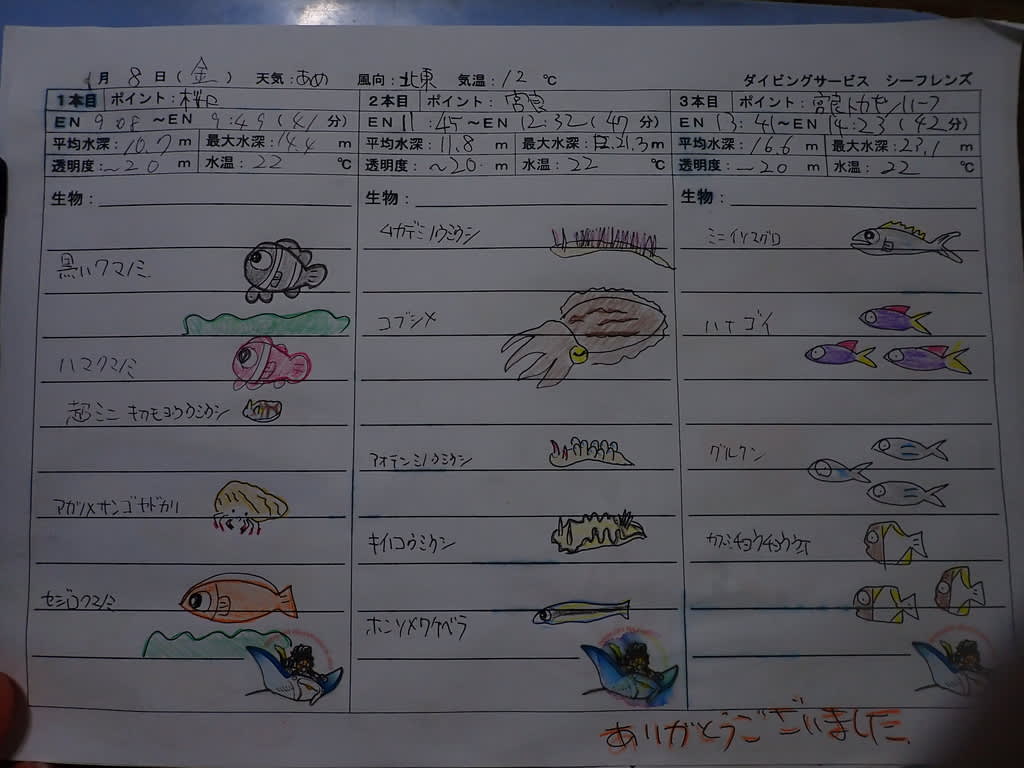 1月 8日(金) 天気:あめ 風向:北東 気温:12℃ ダイビングサービス シーフレンズ
1本目 ポイント:桜口
EN 9:08 ~EN 9:49 (41分)
平均水深:10.7m 最大水深:14.4m
透明度:~20m 水温:22℃
生物:
黒いクマノミ
ハマクマノミ
超ミニ キカモヨウウミウシ
アカツメサンゴヤドカリ
セジロクマノミ
2本目 ポイント:宮良
EN 11:45 ~EN 12:32 (47分)
平均水深:11.8m 最大水深:21.3m
透明度:~20m 水温:22℃
生物:
ムカデミノウミウシ
コブシメ
アオテンミノウミウシ
キイロウミウシ
ホンソメワケベラ
3本目 ポイント:宮良トカキンリーフ
EN 13:41 ~EN 14:23 (42分)
平均水深:16.6m 最大水深:23.1m
透明度:~20m 水温:22℃
生物:
ミニイソマグロ
ハナゴイ
グルクン
カスミチョウチョウウオ
ありがとうございました